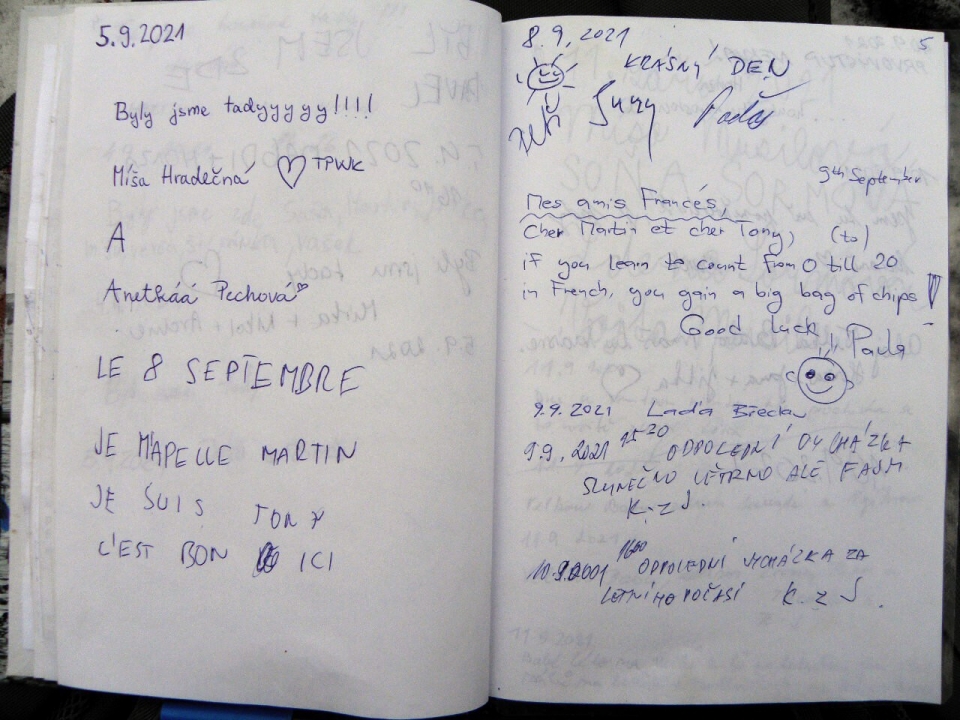 5.9.2021
Byly jsme tadyyyyy!!!!
Míša Hradečná ♡ TPWK
A
Anetkáá Pechová
LE 8 SEPTEMBRE
JE M'APELLE MARTIN
JE SUIS TONY
C'EST BON ICI
5
8.9.2021
KRÁSNÝ DEN
9th September
Mes amis Francés,
Cher Martin et cher Tony, (to)
if you learn to count from 0 till 20
in French, you gain a big bag of chips!
Good luck!
Pavla
9.9.2021 Laďa Břeclav
9.9.2021 15 20 ODPOLEDNÍ VYCHÁZKA
SLUNEČNO VĚTRNO ALE FAJN
K. z J.
10.9.2001 16 00 ODPOLEDNÍ VYCHÁZKA ZA
LETNÍHO POČASÍ K. z J.